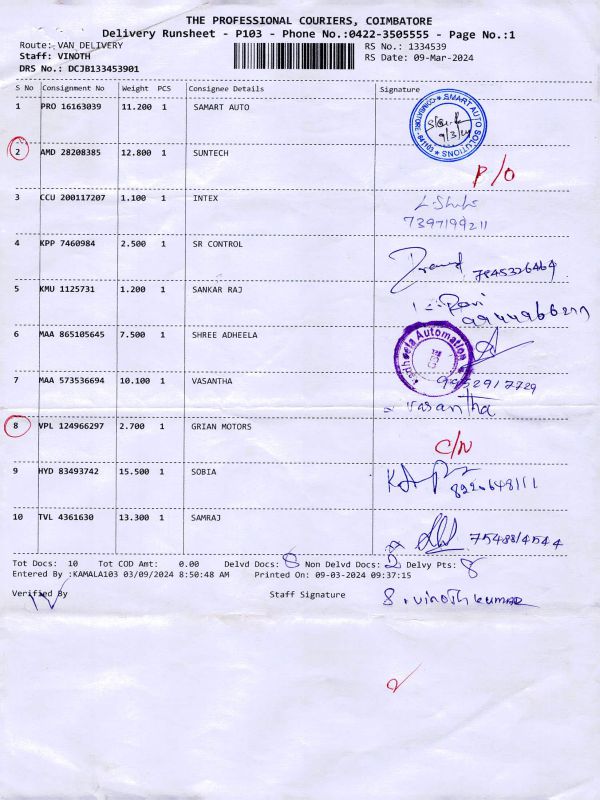 THE PROFESSIONAL COURIERS, COIMBATORE
Delivery Runsheet - P103 - Phone No.:0422-3505555 - Page No.:1
Route: VAN DELIVERY RS No.: 1334539
Staff: VINOTH RS Date: 09-Mar-2024
DRS No.: DCJB133453901
S No Consignment No Weight PCS Consignee Details Signature
1 PRO 16163039 11.200 1 SAMART AUTO
SMART AUTO SOLUTIONS
COIMBATORE
9/3/24
2 AMD 28208385 12.800 1 SUNTECH P/O
3 CCU 200117207 1.100 1 INTEX
7397199211
4 KPP 7460984 2.500 1 SR CONTROL
7845326464
5 KMU 1125731 1.200 1 SANKAR RAJ
Ravi
6 MAA 865105645 7.500 1 SHREE ADHEELA
Automation
7 MAA 573536694 10.100 1 VASANTHA
Vasantha
8 VPL 124966297 2.700 1 GRIAN MOTORS C/N
9 HYD 83493742 15.500 1 SOBIA
10 TVL 4361630 13.300 1 SAMRAJ
Tot Docs: 10 Tot COD Amt: 0.00 Delvd Docs: 8 Non Delvd Docs: 2 Delvy Pts: 8
Entered By :KAMALA103 03/09/2024 8:50:48 AM Printed On: 09-03-2024 09:37:15
Verified By Staff Signature S. Vinoth kumar